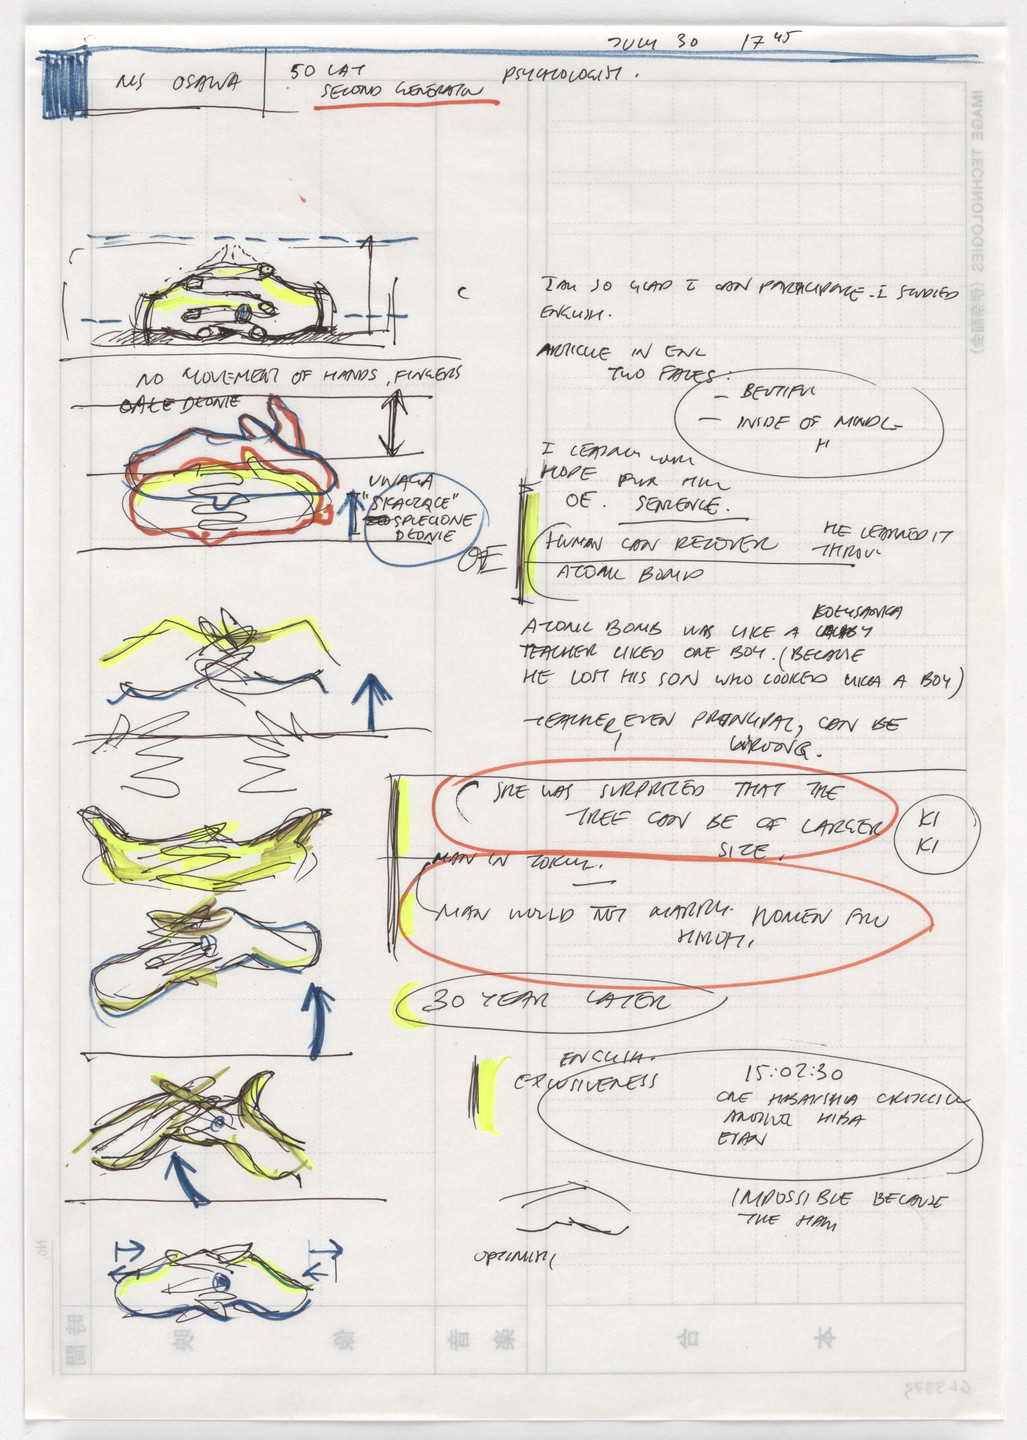 JULY 30 17 45
MS OSAWA
50 LAT PSYCHOLOGIST.
SECOND GENERATION
NO MOVEMENT OF HANDS, FINGERS
CAŁE DŁONIE
UWAGA
"SKACZĄCE"
SPLECIONE
DŁONIE
I AM SO GLAD I CAN PARTICIPATE. I STUDIED
ENGLISH.
ARTICLE IN ENL
TWO FACES:
— BEUTIFUL
— INSIDE OF
H
I
HOPE
OE. SENTENCE.
OE
HUMAN CAN RECOVER HE LEARNED IT
THROU
ATOMIC BOMB
KOŁYSANKA
ATOMIC BOMB WAS LIKE A
TEACHER LIKED ONE BOY. (BECAUSE
HE LOST HIS SON WHO LOOKED LIKE A BOY)
TEACHER, EVEN PRINCIPAL, CAN BE
WRONG.
SHE WAS SURPRIZED THAT THE
TREE CAN BE OF LARGER
SIZE.
KI
KI
MAN IN TOKYO.
MAN WOULD NOT MARRY WOMEN FROM
HIROSH.
30 YEAR LATER
ENGLISH.
EXPLUSIVENESS
15:02:30
ONE HIBAKUSHA
ANOTHER HIBA
IMPOSSIBLE BECAUSE
THE
OPTIMIST,
IMAGE TECHNOLOGIES
No.
時間
映
像
音楽
台
本